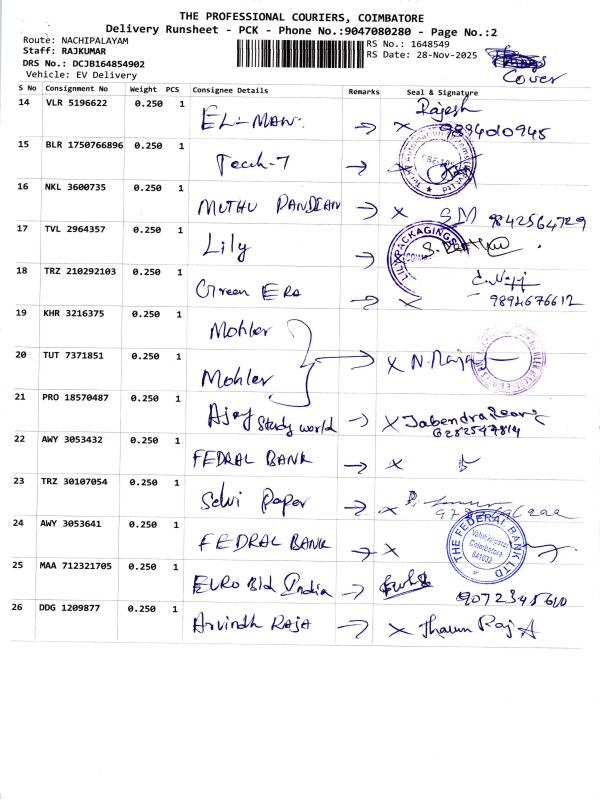 THE PROFESSIONAL COURIERS, COIMBATORE
Delivery Runsheet - PCK - Phone No.:9047080280 - Page No.:2
Route: NACHIPALAYAM
RS No.: 1648549
Staff: RAJKUMAR
RS Date: 28-Nov-2025
DRS No.: DCJB164854902
Cover
Vehicle: EV Delivery
S No Consignment No Weight PCS Consignee Details Remarks Seal & Signature
14 VLR 5196622 0.250 1 EL-MAN. → X Rajesh
15 BLR 1750766896 0.250 1 Tech-7 → X
16 NKL 3600735 0.250 1 MUTHU PANDIAN → X SM 9842564729
17 TVL 2964357 0.250 1 Lily → LILY PACKAGINGS
18 TRZ 210292103 0.250 1 Green Era → X 9894676612
19 KHR 3216375 0.250 1 Mohler
20 TUT 7371851 0.250 1 Mohler → X N. Raja
21 PRO 18570487 0.250 1 Ajay Study world → X
22 AWY 3053432 0.250 1 FEDRAL BANK → X
23 TRZ 30107054 0.250 1 Selvi Paper → X
24 AWY 3053641 0.250 1 FEDRAL BANK → X THE FEDERAL BANK LTD Coimbatore
25 MAA 712321705 0.250 1 EURO Bid India → 9072345610
26 DDG 1209877 0.250 1 Arvindh RAJA → X Tharun Raj A